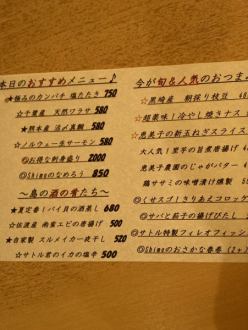 本日のおすすめメニュー♪
★極みのカンパチ 塩たたき 750
☆千葉産 天然ワラサ 580
★熊本産 活〆真鯛 580
☆ノルウェー生サーモン 580
◎お得な刺身盛り 2000
◎Shimoのなめろう 850
～島の酒の肴たち～
★夏定番!バイ貝の酒蒸し 680
☆佐渡産 南蛮エビの唐揚げ 500
★自家製 スルメイカ一夜干し 520
☆サトル君のイカの塩辛 500
今が旬&人気のおつま
★黒埼産 朝採り枝豆 48
☆超美味!冷やし焼きナス
★恵美子の新玉ねぎスライス
大人気!里芋の旨煮唐揚げ
恵美子農園のじゃがバター
鶏ササミの味噌漬け燻製
◎くせスゴ!きりあえコロッケ
◎サバと茄子の揚げびたし
◎サトル特製フィレオフィッシ
◎Shimoのおさかな春巻(2ヶ)